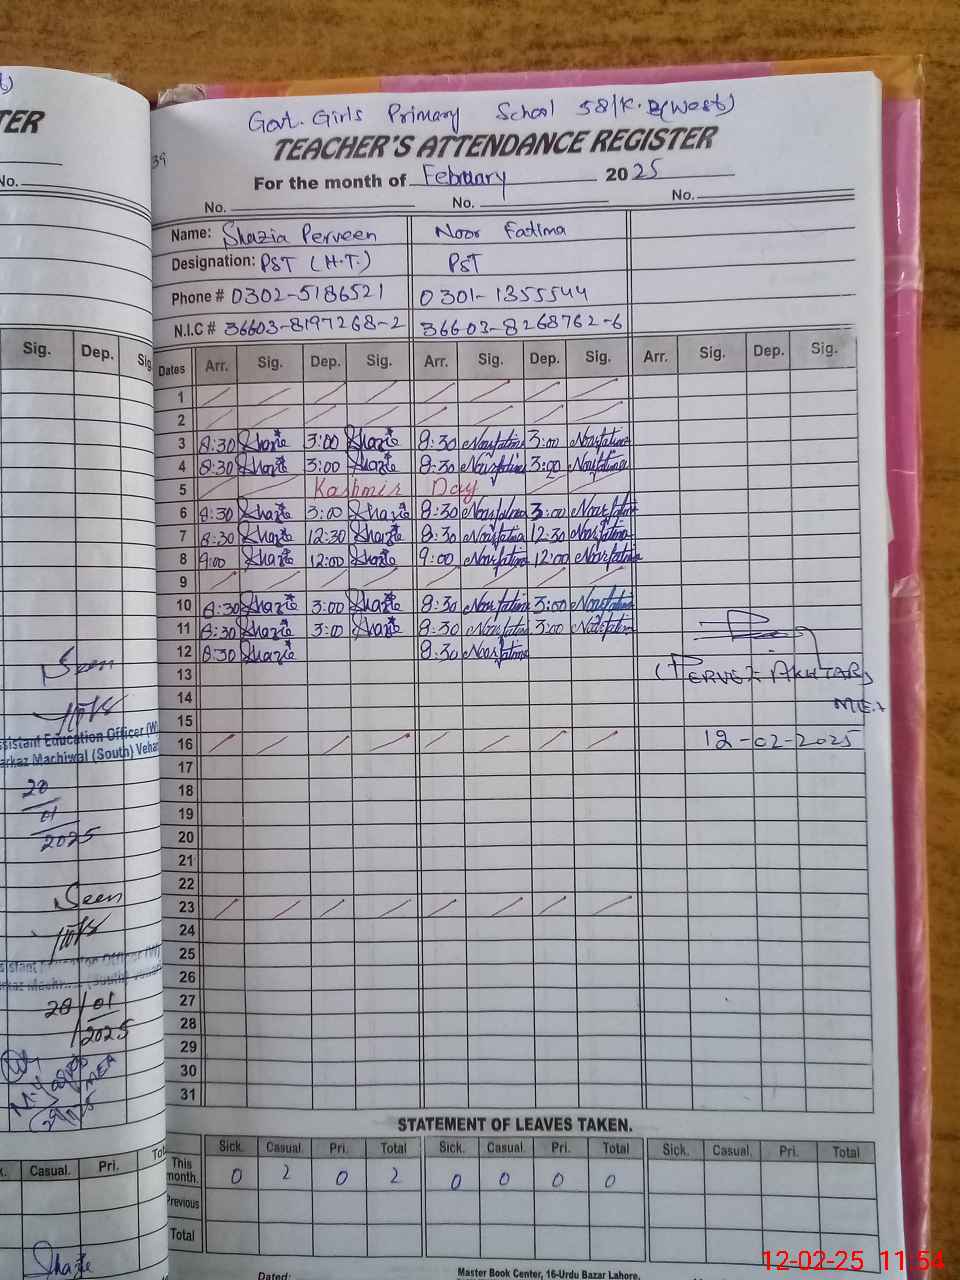 TER
No.
Sig. Dep. Sig
Seen
Assistant Education Officer (W)
Markaz Machiwal (South) Vehari
20
01
2025
Seen
20/01
2025
MEA
Casual. Pri. Total
Shazie
39
Govt. Girls Primary School 58/K.B(West)
TEACHER'S ATTENDANCE REGISTER
For the month of February 2025
No. No. No.
Name: Shazia Perveen Noor Fatima
Designation: PST (H.T.) PST
Phone # 0302-5186521 0301-1355544
N.I.C # 36603-8197268-2 36603-8268762-6
Dates Arr. Sig. Dep. Sig. Arr. Sig. Dep. Sig. Arr. Sig. Dep. Sig.
1
2
3 8:30 Shazie 3:00 Shazie 8:30 Noorfatima 3:00 Noorfatima
4 8:30 Shazie 3:00 Shazie 8:30 Noorfatima 3:00 Noorfatima
5 Kashmir Day
6 8:30 Shazie 3:00 Shazie 8:30 Noorfatima 3:00 Noorfatima
7 8:30 Shazie 12:30 Shazie 8:30 Noorfatima 12:30 Noorfatima
8 9:00 Shazie 12:00 Shazie 9:00 Noorfatima 12:00 Noorfatima
9
10 8:30 Shazie 3:00 Shazie 8:30 Noorfatima 3:00 Noorfatima
11 8:30 Shazie 3:00 Shazie 8:30 Noorfatima 3:00 Noorfatima
12 8:30 Shazie 8:30 Noorfatima
13 (PERVEZ AKHTAR)
14 MEA
15
16 12-02-2025
17
18
19
20
21
22
23
24
25
26
27
28
29
30
31
STATEMENT OF LEAVES TAKEN.
Sick. Casual. Pri. Total Sick. Casual. Pri. Total Sick. Casual. Pri. Total
This month. 0 2 0 2 0 0 0 0
Previous
Total
Dated:
Master Book Center, 16-Urdu Bazar Lahore.
12-02-25 11:54